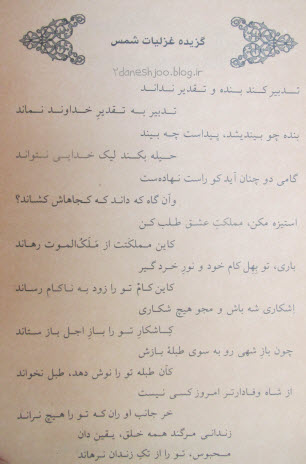 گزیده غزلیات شمس
Ydaneshjoo.blog.ir
تدبیر کند بنده و تقدیر نداند
تدبیر به تقدیرِ خداوند نماند
بنده چو بیندیشد، پیداست چه بیند
حیله بکند لیک خدایی نتواند
گامی دو چنان آید کو راست نهاده‌ست
وآن گاه که داند که کجاهاش کشاند؟
استیزه مکن، مملکتِ عشق طلب کن
کاین مملکتت از مَلَک‌الموت رهاند
باری، تو بِهِل کام خود و نورِ خرد گیر
کاین کام تو را زود به ناکام رساند
اِشکاری شه باش و مجو هیچ شکاری
کاِشکارِ تو را بازِ اجل باز ستاند
چون باز شهی رو به سوی طبلهٔ بازش
کآن طبله تو را نوش دهد، طبل نخواند
از شاه وفادارتر امروز کسی نیست
خر جانب او ران که تو را هیچ نراند
زندانی مرگند همه خلق، یقین دان
محبوس، تو را از تکِ زندان نرهاند